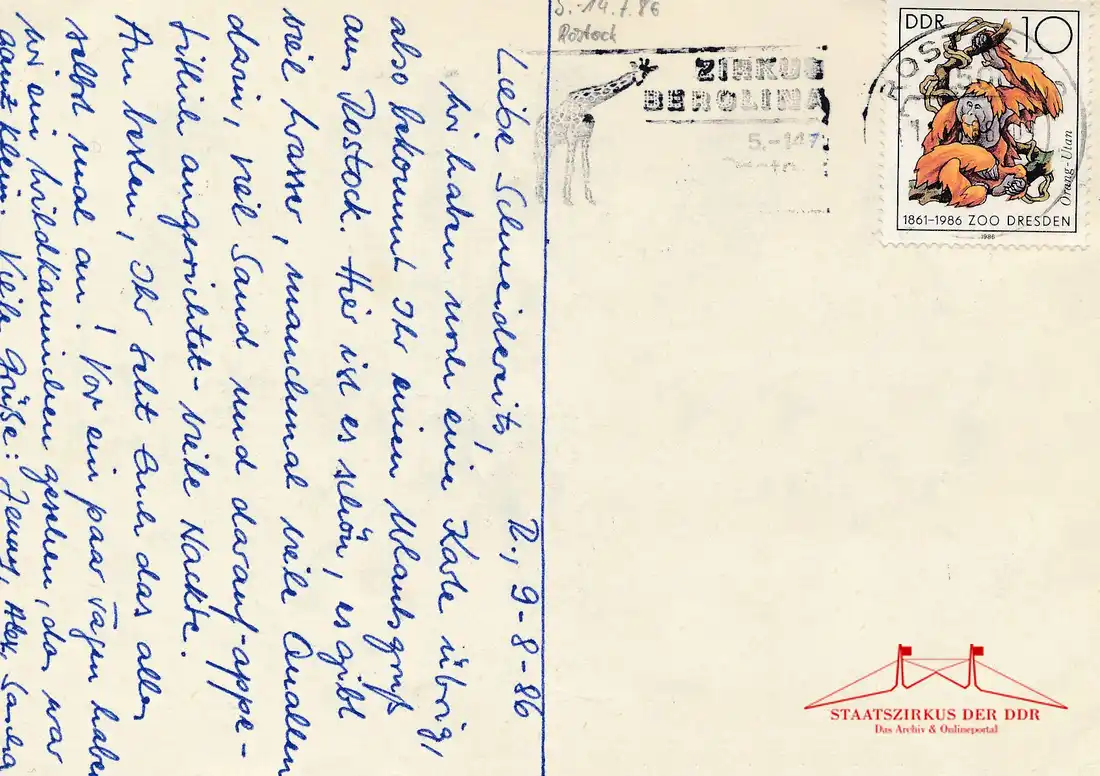 Liebe Schneidereits, R., 9-8-86
wir haben noch eine Karte übrig,
also bekommt Ihr einen Urlaubsgruß
aus Rostock. Hier ist es schön, es gibt
viel Wasser, manchmal viele Quallen
darin, viel Sand und darauf - appe-
titlich angerichtet - viele Nackte.
Am besten, Ihr seht Euch das alles
selbst mal an! Vor ein paar Tagen haben
wir ein Wildkaninchen gesehen, das war
ganz klein. Viele Grüße: Jenny, Alex, Sandra
5.-14.7.86
Rostock
ZIRKUS
BEROLINA
5.-147
DDR 10
Orang-Utan
1861–1986 ZOO DRESDEN
1986
ROSTOCK
STAATSZIRKUS DER DDR
Das Archiv & Onlineportal